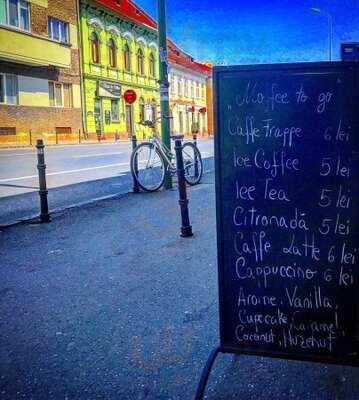 "Moffee to go"
Caffe Frappe 6 lei
Ice Coffee 5 lei
Ice Tea 5 lei
Citronadă 5 lei
Caffe Latte 6 lei
Cappuccino 6 lei
Arome: Vanilla,
Cupcake, Caramel,
Coconut, Huzelnut